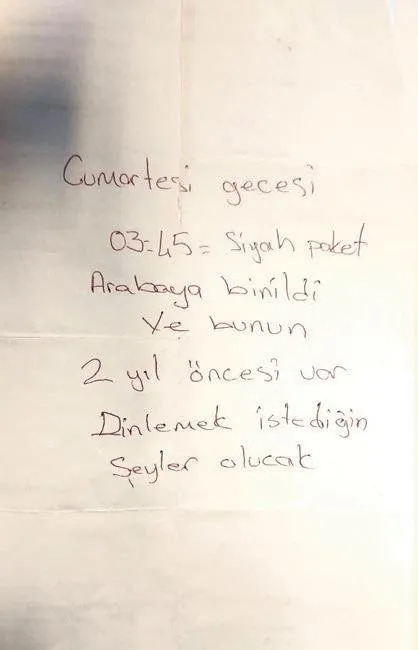 Cumartesi gecesi
03:45 = Siyah paket
Arabaya binildi
Ve bunun
2 yıl öncesi var
Dinlemek istediğin
Şeyler olucak